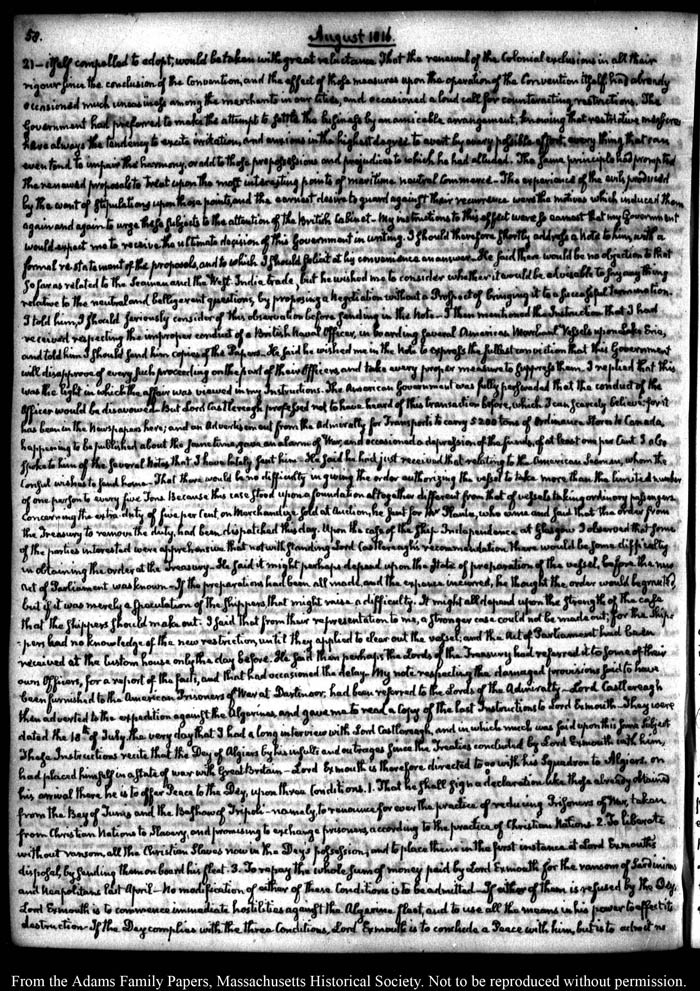 58.
August 1816.
21 — itself compelled to adopt, would be taken with great reluctance. That the renewal of the Colonial exclusions in all their
rigour since the conclusion of the Convention, and the effect of those measures upon the operation of the Convention itself had already
occasioned much uneasiness among the merchants in our Cities, and occasioned a loud call for counteracting restrictions. The
Government had preferred to make the attempt to settle the business by an amicable arrangement, knowing that restrictive measures
have always the tendency to excite irritation, and anxious in the highest degree to avert by every possible effort, every thing that can
even tend to impair the harmony, or add to those prepossessions and prejudices to which he had alluded. The same principle had prompted
the renewed proposals to treat upon the most interesting points of maritime neutral Commerce — The experience of the evils produced
by the want of stipulations upon those points, and the earnest desire to guard against their recurrence were the motives which induced them
again and again to urge these subjects to the attention of the British Cabinet — My instructions to this effect were so earnest that my Government
would expect me to receive the ultimate decision of this Government in writing. I should therefore shortly address a Note to him, with a
formal re-statement of the proposals, and to which I should solicit at his convenience an answer. He said there would be no objection to that
so far as related to the Seamen and the West-India trade, but he wished me to consider whether it would be adviseable to say any thing
relative to the neutral and belligerent questions, by proposing a Negotiation without a Prospect of bringing it to a successful termination.
I told him, I should seriously consider of this observation before sending in the Note. I then mentioned the Instruction that I had
received respecting the improper conduct of a British Naval Officer, in boarding several American Merchant Vessels upon Lake Erie,
and told him I should send him copies of the Papers. He said he wished me in the Note to express the fullest conviction that this Government
will disapprove of every such proceeding on the part of their Officers, and take every proper measure to suppress them. I replied that this
was the light in which the affair was viewed in my Instructions. The American Government was fully persuaded that the conduct of the
Officer would be disavowed. But Lord Castlereagh professed not to have heard of this transaction before, which I can scarcely believe; for it
has been in the Newspapers here; and an Advertisement from the Admiralty for Transports to carry 5200 tons of Ordinance Stores to Canada,
happening to be published about the same time, gave an alarm of War, and occasioned a depression of the funds, of at least one per Cent. I also
spoke to him of the several Notes that I have lately sent him. He said he had just received that relating to the American Seamen, whom the
Consul wishes to send home. That there would be no difficulty in giving the order authorizing the vessel to take more than the limited number
of one person to every five Tons. Because this case stood upon a foundation altogether different from that of vessels taking ordinary passengers.
Concerning the extra duty of five per Cent on Merchandize sold at auction, he sent for Mr. who came and said that the order from
the Treasury to remove the duty, had been dispatched this day. Upon the case of the Ship Independence at Glasgow I observed that some
of the parties interested were apprehensive that notwithstanding Lord Castlereagh's recommendation there would be some difficulty
in obtaining the order at the Treasury. He said it might perhaps depend upon the state of preparation of the vessel, before the new
Act of Parliament was known — If the preparations had been all made, and the expense incurred, he thought the order would be granted;
but if it was merely a speculation of the shippers, that might raise a difficulty. It might all depend upon the strength of the case
that the shippers should make out. I said that from their representation to me, a stronger case could not be made out; for the ship-
-pers had no knowledge of the new restriction, until they applied to clear out the vessel; and the Act of Parliament had been
received at the Custom house only the day before. He said then perhaps the Lords of the Treasury had referred it to some of their
own Officers, for a report of the facts, and that had occasioned the delay. My note respecting the damaged provisions said to have
been furnished to the American Prisoners of War at Dartmoor, had been referred to the Lords of the Admiralty — Lord Castlereagh
then adverted to the expedition against the Algerines, and gave me to read a Copy of the last Instructions to Lord Exmouth. They were
dated the 18th of July, the very day that I had a long interview with Lord Castlereagh, and in which much was said upon this same subject
These Instructions recite that the Dey of Algiers by his insults and outrages since the Treaties concluded by Lord Exmouth with him,
had placed himself in a state of war with Great Britain — Lord Exmouth is therefore directed to go with his Squadron to Algiers. on
his arrival there he is to offer Peace to the Dey, upon three conditions. 1. That he shall sign a declaration like those already obtained
from the Bey of Tunis and the Bashaw of Tripoli — namely, to renounce for ever the practice of reducing Prisoners of War, taken
from Christian Nations to Slavery, and promising to exchange prisoners, according to the practice of Christian Nations. 2. To liberate
without ransom, all the Christian Slaves now in the Dey's possession, and to place them in the first instance at Lord Exmouth's
disposal, by sending them on board his fleet. 3. To repay the whole sum of money paid by Lord Exmouth for the ransom of Sardinians
and Neapolitans last April — No modification of either of these Conditions is to be admitted — If either of them is refused by the Dey.
Lord Exmouth is to commence immediate hostilities against the Algerine fleet, and to use all the means in his power to effect its
destruction — If the Dey complies with the three Conditions, Lord Exmouth is to conclude a Peace with him, but is to no
From the Adams Family Papers, Massachusetts Historical Society. Not to be reproduced without permission.